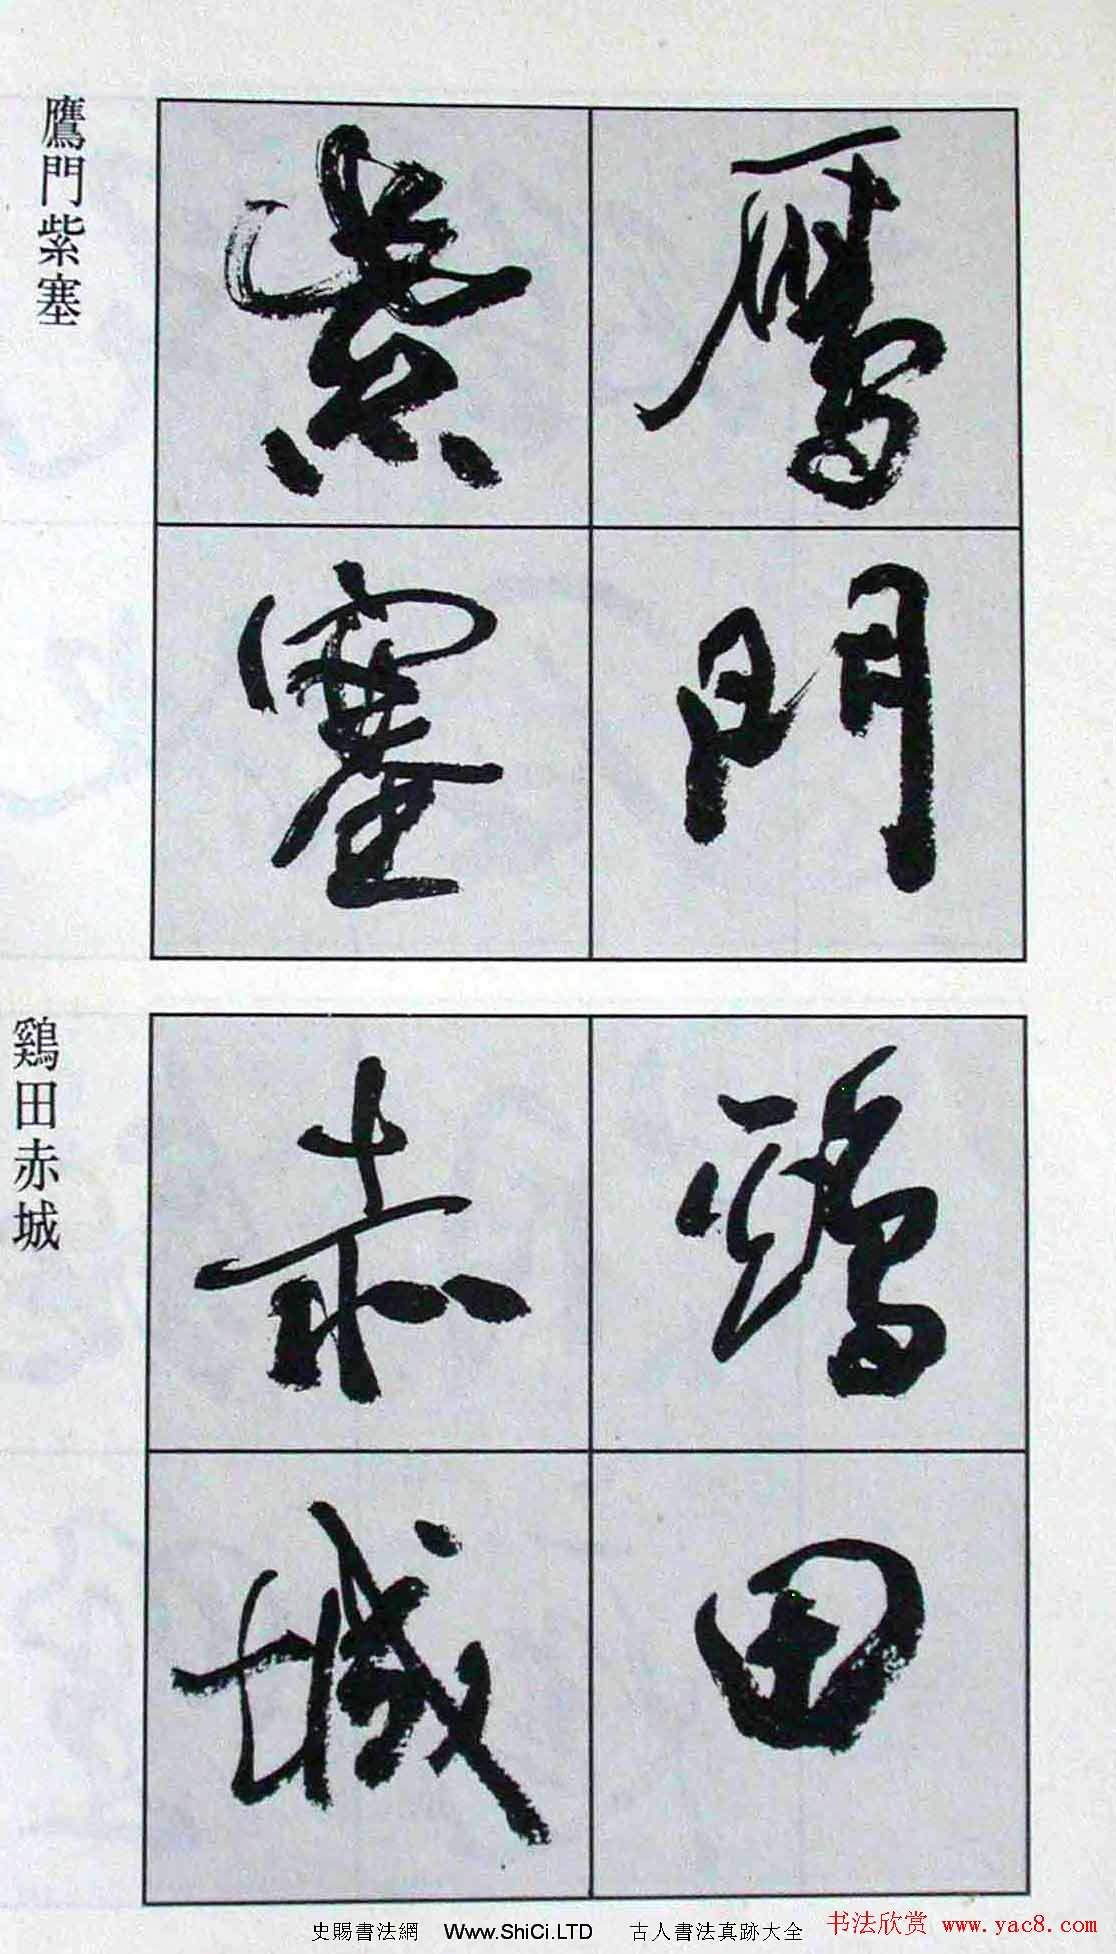 鷹門
紫塞
鷹門紫塞
鷄田
赤城
鷄田赤城
史賜書法網 Www.ShiCi.LTD 古人書法真跡大全
书法欣赏 www.yac8.com